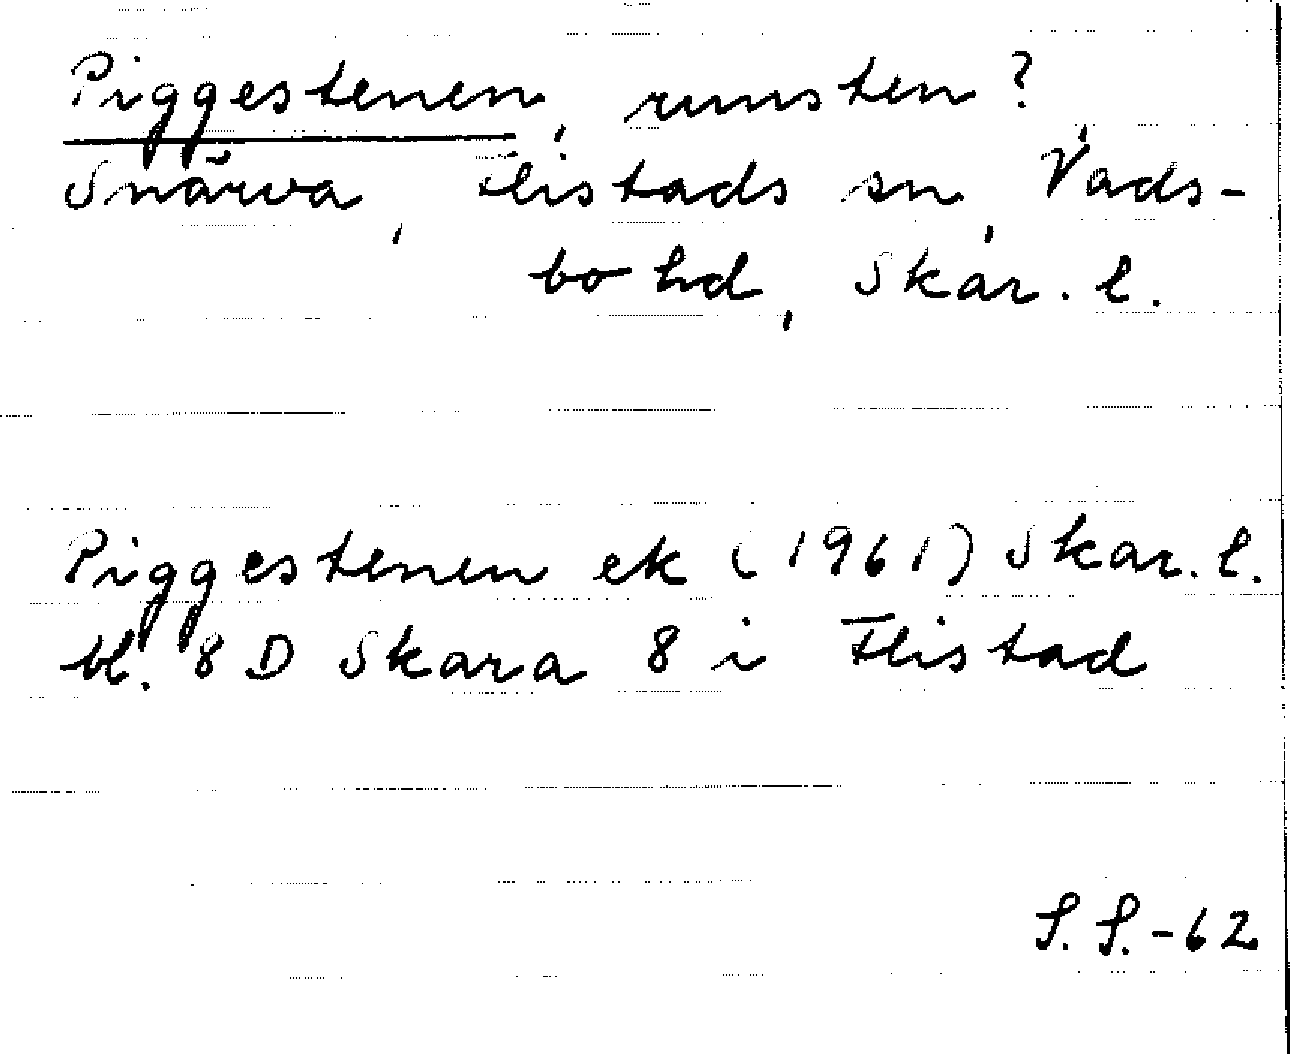 Piggestenen, runsten?
Snärva, Flistads sn, Vads-
bo hd, Skar. l.
Piggestenen ek (1961) Skar. l.
bl. 8 D Skara 8 i Flistad
S. S. -62